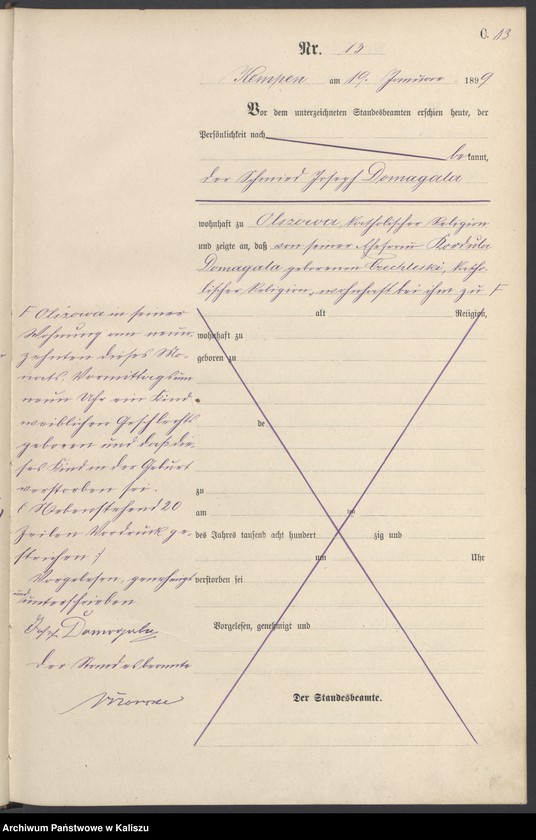 C. 13
Nr. 13
Kempen am 19. Januar 1899
Vor dem unterzeichneten Standesbeamten erschien heute, der
Persönlichkeit nach
bekannt,
der Schmied Joseph Domagala
wohnhaft zu Olszowa, katholischer Religion
und zeigte an, daß von seiner Ehefrau Kordula
Domagala geborenen katho-
lischer Religion, wohnhaft bei ihm zu F
F Olszowa in seiner
Wohnung am neun-
zehnten dieses Mo-
nats, Vormittags um
neun Uhr ein Kind
weiblichen Geschlechts
geboren und daß die-
ses Kind in der Geburt
verstorben sei.
(Nebenstehend 20
Zeilen Vordruck ge-
strichen :/
Vorgelesen, genehmigt
und unterschrieben
Josef Domogala
Der Standesbeamte
alt Religion,
wohnhaft zu
geboren zu
de
zu
am ten
des Jahres tausend acht hundert zig und
um Uhr
verstorben sei
Vorgelesen, genehmigt und
Der Standesbeamte.
Archiwum Państwowe w Kaliszu